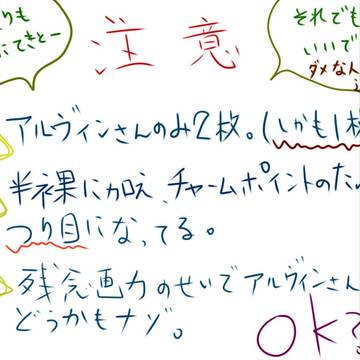 りも
てきとー
注意
それでも
いいで
ダメなん
アルヴィンさんのみ2枚。(しかも1枚
半裸に加え、チャームポイントのた
つり目になってる。
残念画力のせいでアルヴィンさん
どうかもナゾ。
OK?